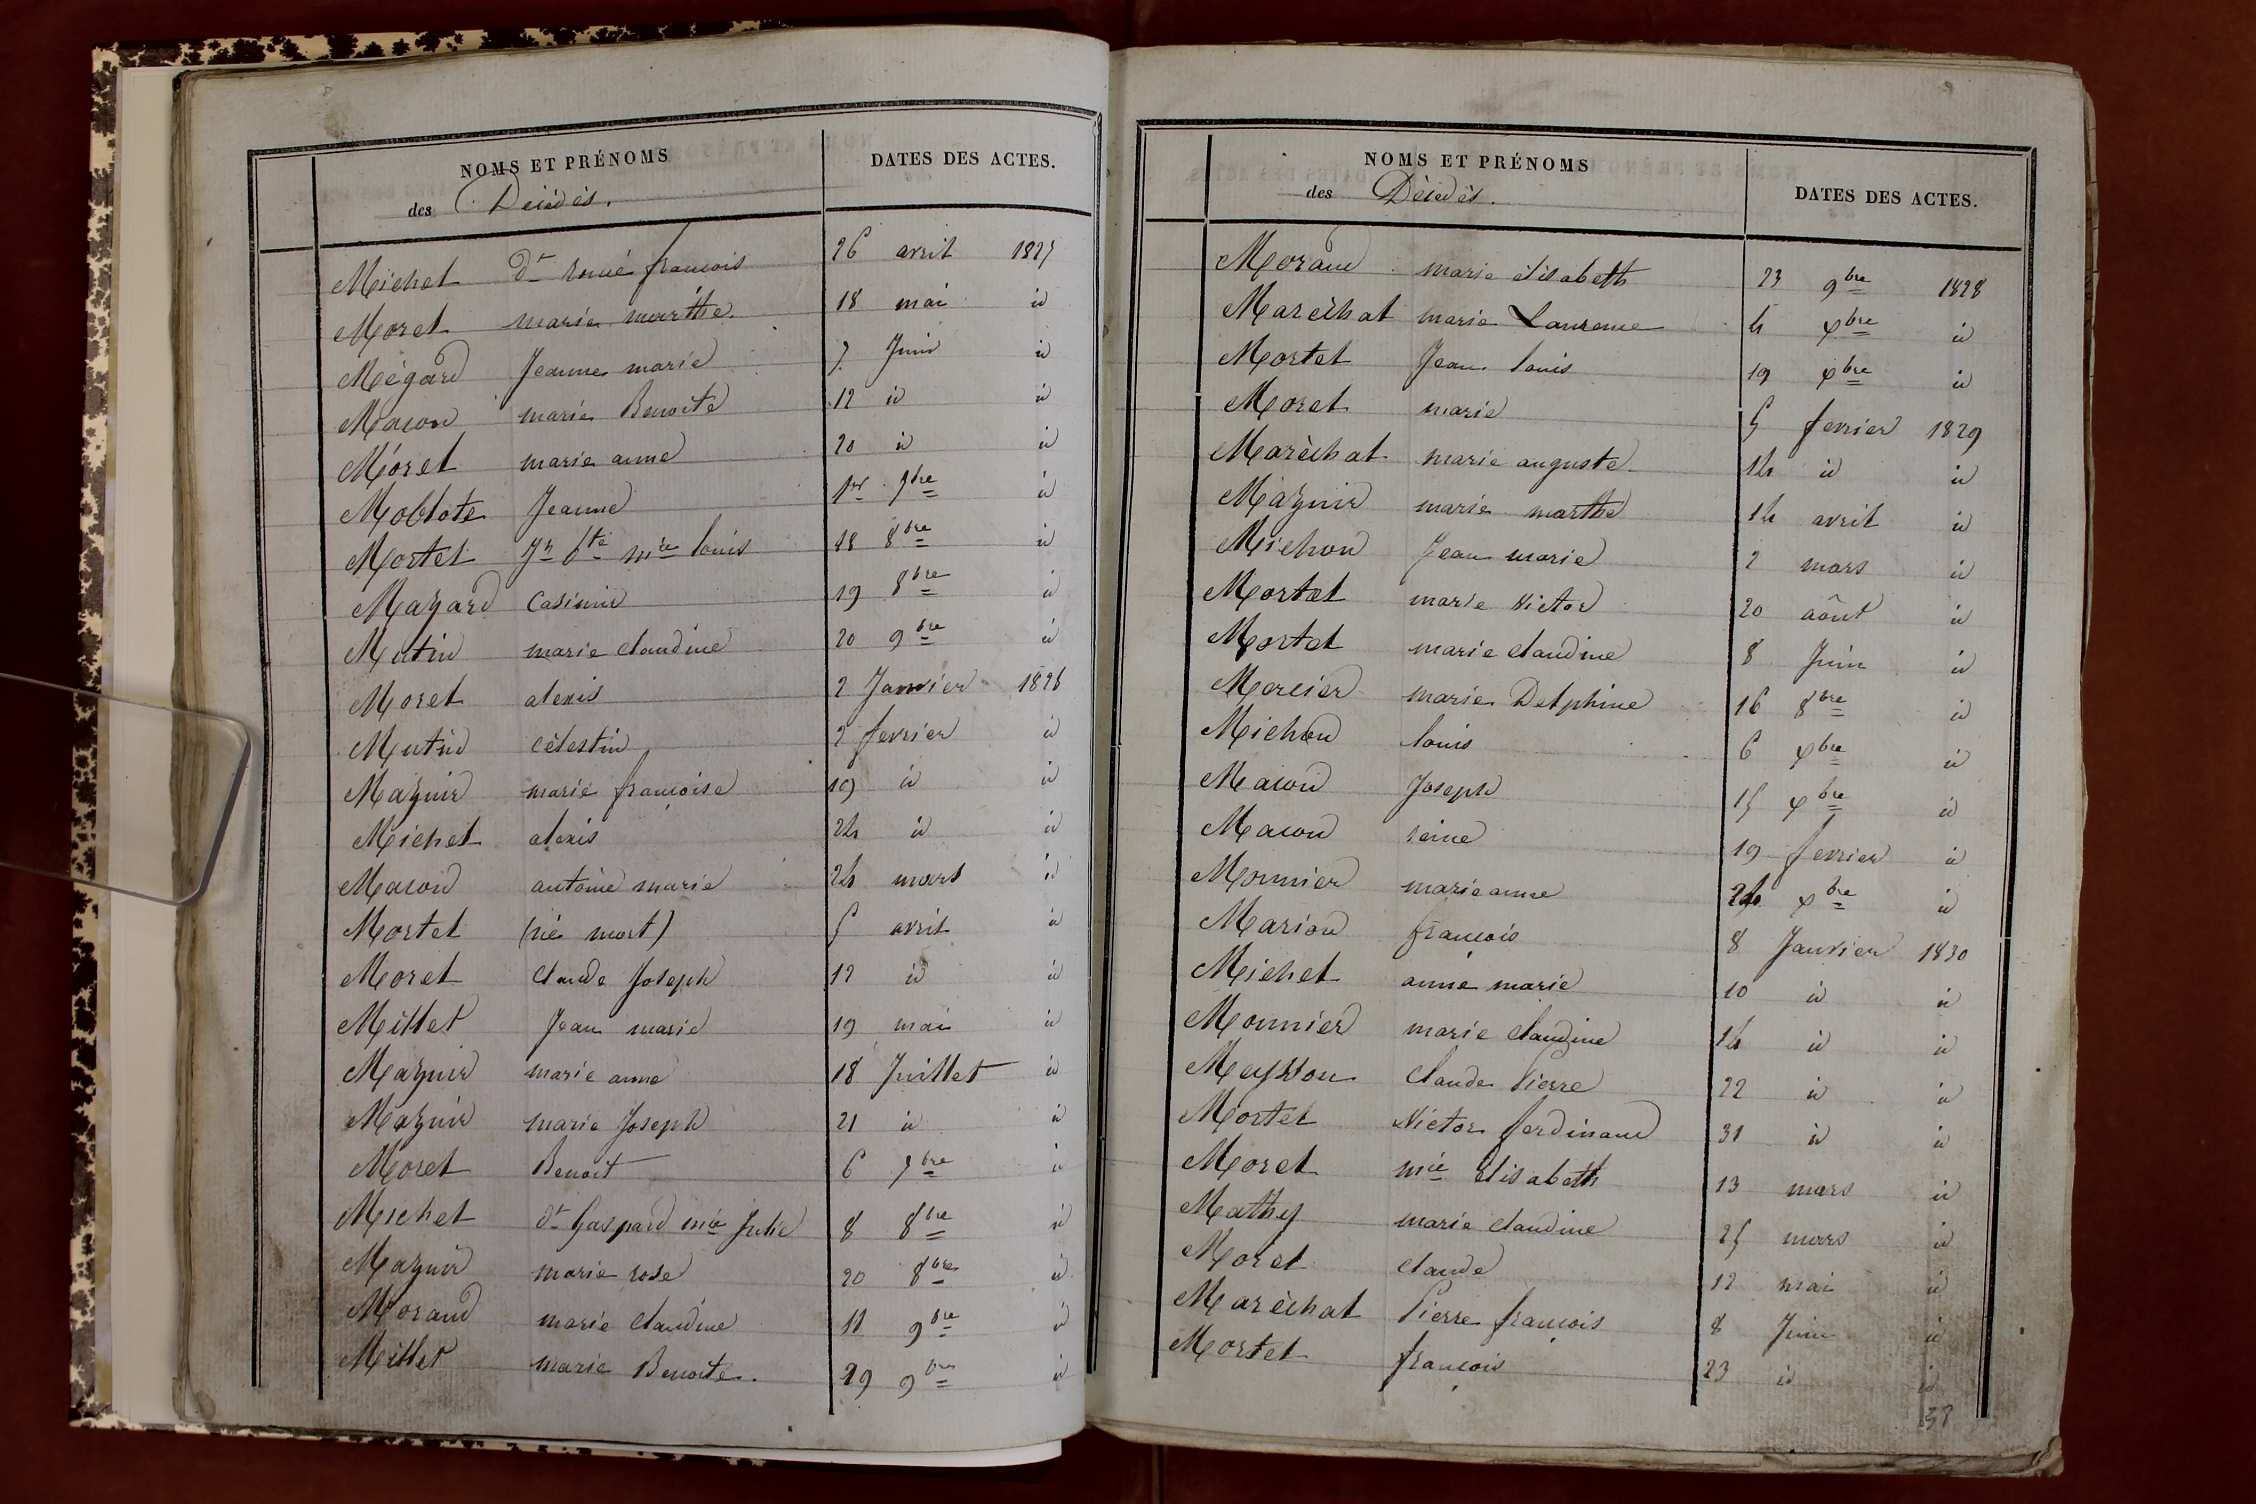 NOMS ET PRÉNOMS
des Décédés.
DATES DES ACTES.
Michet dt François 26 avril 1827
Moret marie marthe 18 mai id
Mégard Jeanne marie 7 Juin id
Macon marie Benoite 12 id id
Moret marie anne 20 id id
Moblote Jeanne 1er 7bre id
Mortet Jn Bte mie louis 18 8bre id
Mazard Casimir 19 8bre id
Mutin marie claudine 20 9bre id
Moret alexis 2 Janvier 1828
Mutin célestin 2 fevrier id
Mazuir marie francoise 19 id id
Michet alexis 24 id id
Macon antoine marie 24 mars id
Mortet (né mort) 5 avril id
Moret claude Joseph 12 id id
Millet Jean marie 19 mai id
Mazuir marie anne 18 Juillet id
Mazuir marie Joseph 21 id id
Moret Benoit 6 7bre id
Michet dt Gaspard mie Julie 8 8bre id
Mazuir marie rose 20 8bre id
Morand marie claudine 11 9bre id
Millet marie Benoite. 29 9bre id
NOMS ET PRÉNOMS
des Décédés.
DATES DES ACTES.
Morand marie élisabeth 23 9bre 1828
Maréchal marie Laurence 4 xbre id
Mortet Jean louis 19 xbre id
Moret marie 5 fevrier 1829
Maréchal marie auguste 14 id id
Mazuir marie marthe 14 avril id
Michon Jean marie 2 mars id
Mortet marie Victor 20 août id
Mortet marie claudine 8 Juin id
Mercier marie Delphine 16 8bre id
Michon louis 6 xbre id
Macon Joseph 15 xbre id
Macon reine 19 fevrier id
Monnier marie anne 24 xbre id
Marion françois 8 Janvier 1830
Michet anne marie 10 id id
Monnier marie claudine 14 id id
Meysson claude Pierre 22 id id
Mortet Victor ferdinand 31 id id
Moret mie Elisabeth 13 mars id
Mathy marie claudine 25 mars id
Moret claude 12 mai id
Maréchal Pierre françois 8 Juin id
Mortet françois 23 id id